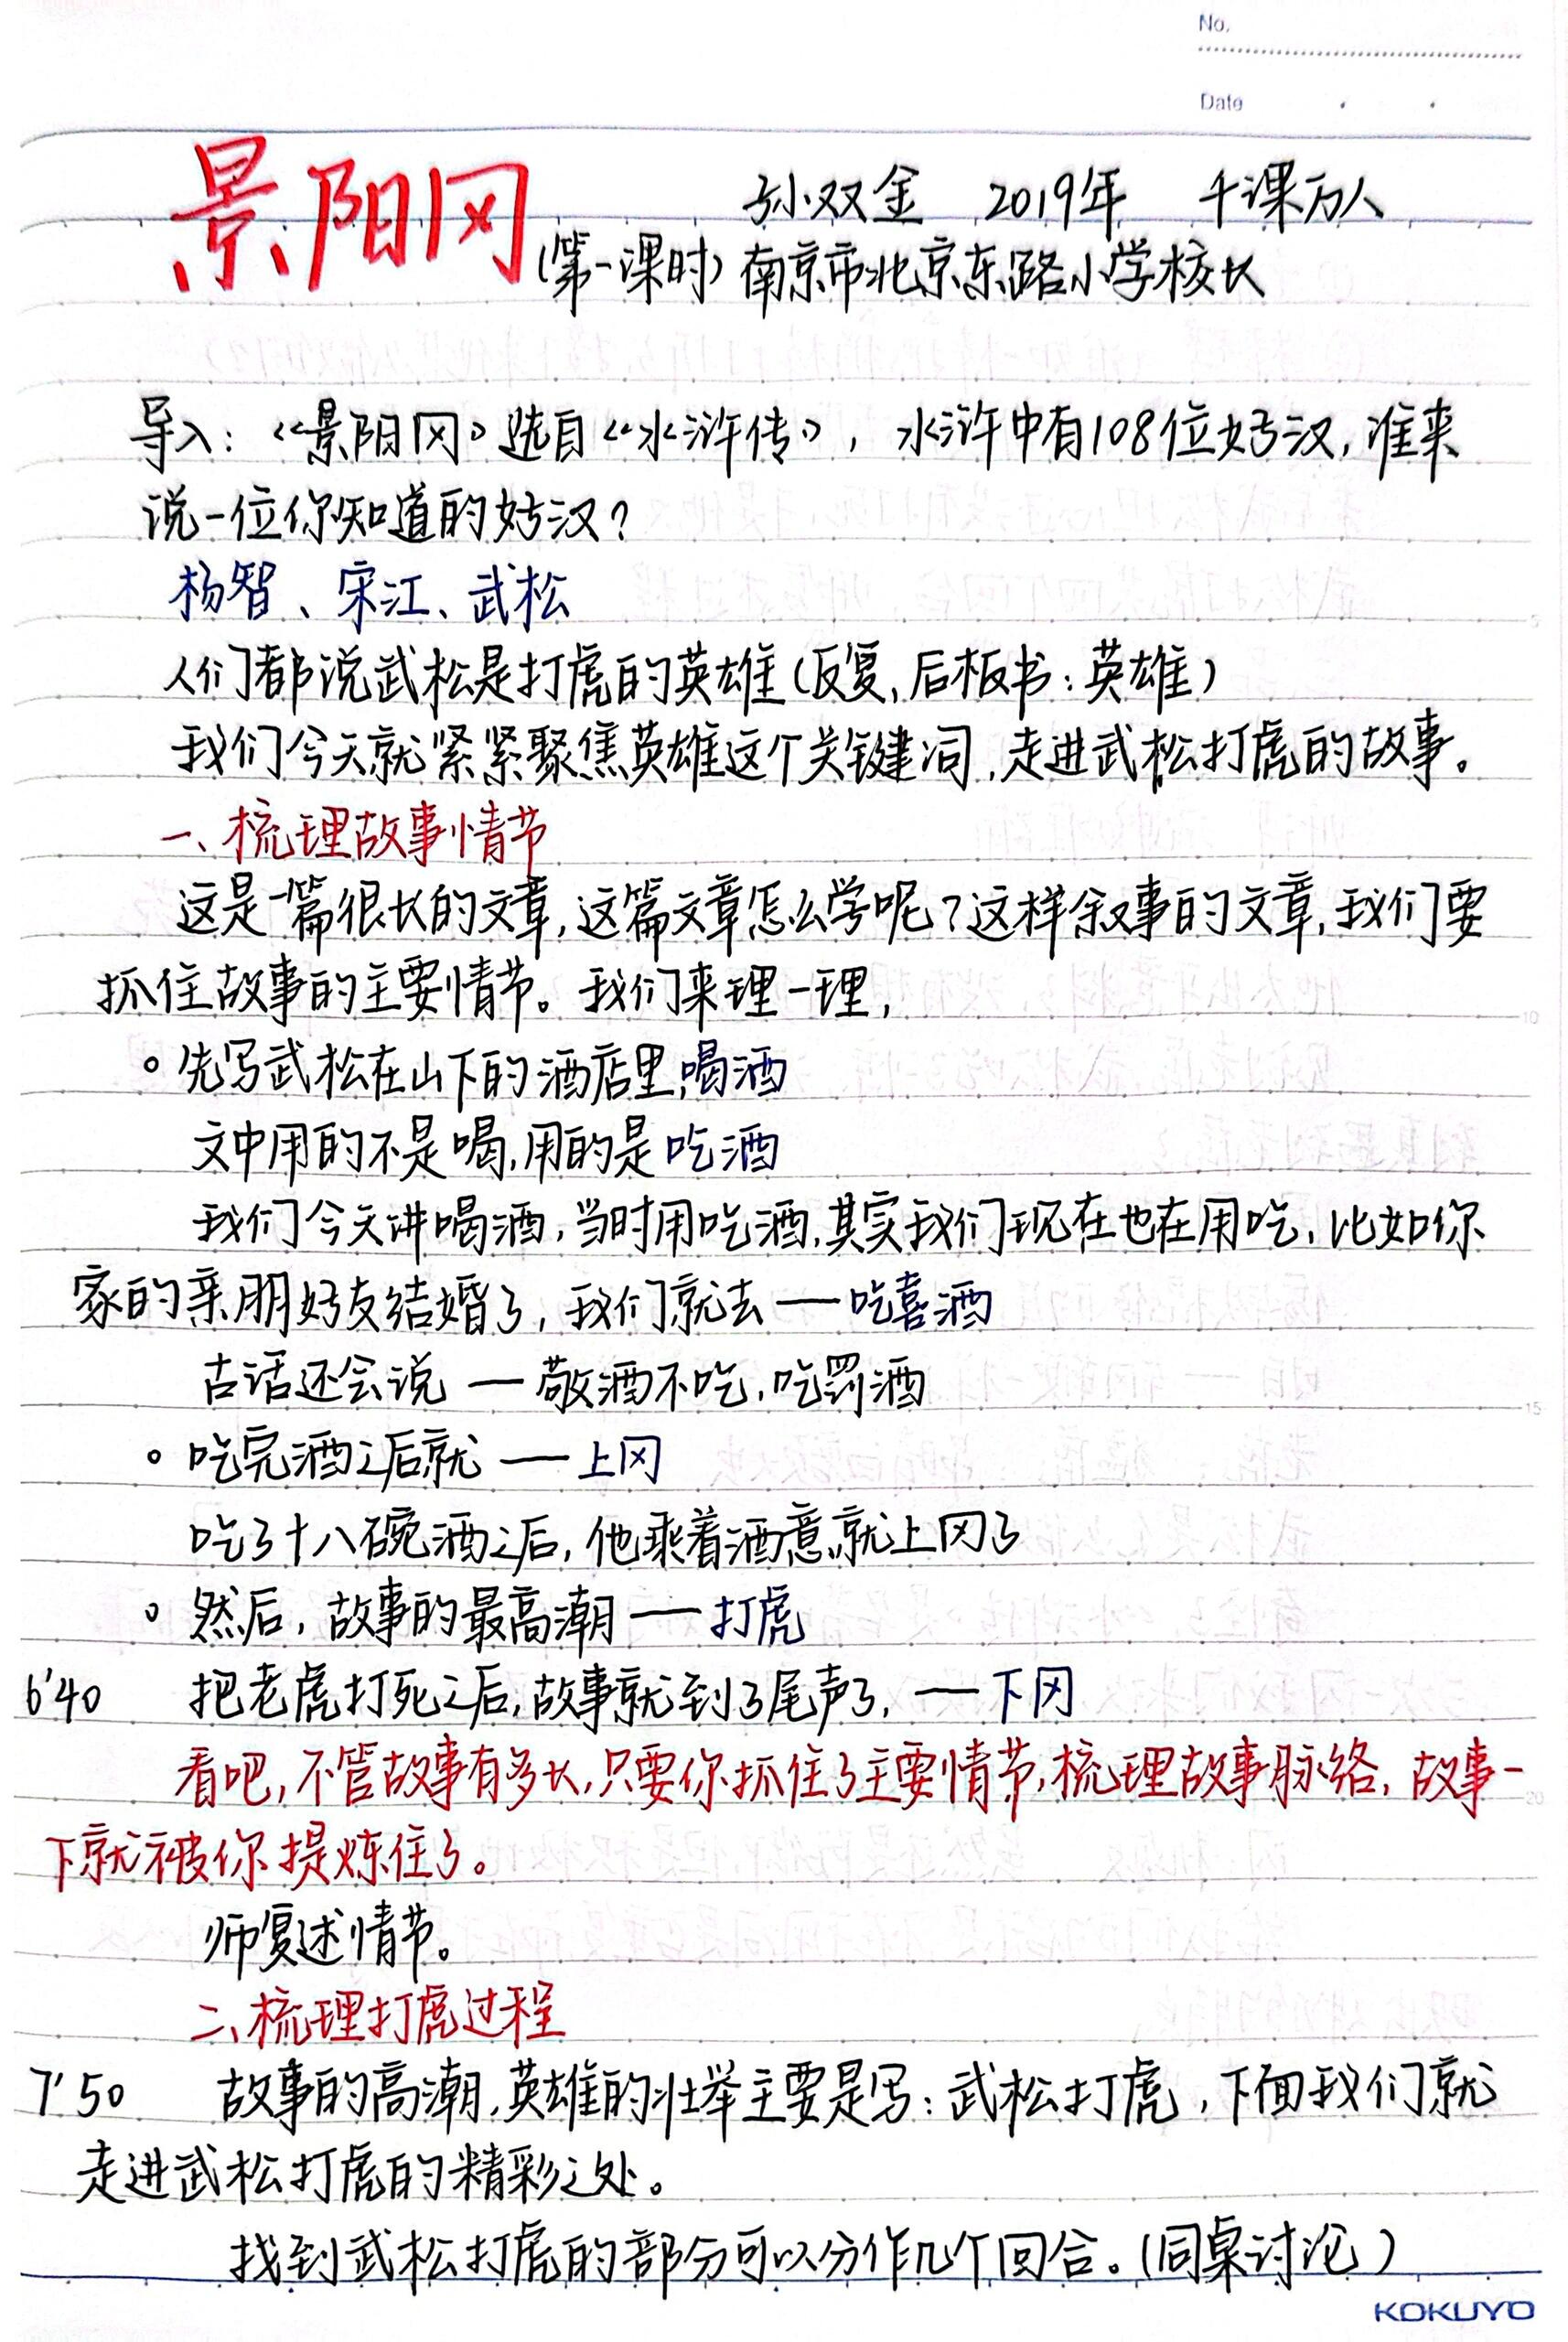 No.
Date
景阳冈 孙双金 2019年 千课万人
(第一课时) 南京市北京东路小学校长
导入：《景阳冈》选自《水浒传》，水浒中有108位好汉，谁来
说一位你知道的好汉？
杨智、宋江、武松
人们都说武松是打虎的英雄(反复，后板书：英雄)
我们今天就紧紧聚焦英雄这个关键词，走进武松打虎的故事。
一、梳理故事情节
这是一篇很长的文章，这篇文章怎么学呢？这样叙事的文章，我们要
抓住故事的主要情节。我们来理一理，
。先写武松在山下的酒店里，喝酒
文中用的不是喝，用的是吃酒
我们今天讲喝酒，当时用吃酒，其实我们现在也在用吃，比如你
家的亲朋好友结婚了，我们就去——吃喜酒
古话还会说——敬酒不吃，吃罚酒
。吃完酒之后就——上冈
吃了十八碗酒之后，他乘着酒意，就上冈了
。然后，故事的最高潮——打虎
6'40 把老虎打死之后，故事就到了尾声了，——下冈
看吧，不管故事有多长，只要你抓住了主要情节，梳理故事脉络，故事一
下就被你提炼住了。
师复述情节。
二、梳理打虎过程
7'50 故事的高潮，英雄的壮举主要是写：武松打虎，下面我们就
走进武松打虎的精彩之处。
找到武松打虎的部分可以分作几个回合。(同桌讨论)
KOKUYO